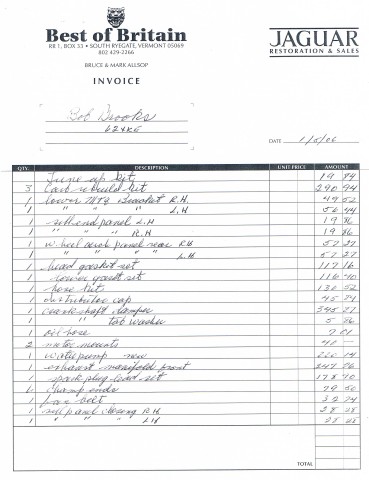 Best of Britain
RR 1, BOX 33 • SOUTH RYEGATE, VERMONT 05069
802 429-2266
BRUCE & MARK ALLSOP
INVOICE
JAGUAR
RESTORATION & SALES
Bob Brooks
62 XKE
DATE 1/5/06
QTY. DESCRIPTION UNIT PRICE AMOUNT
Tune up kit 19 94
3 Carb rebuild kit 290 94
1 lower Mtg Bracket R.H. 49 52
1 " " " L.H 56 44
1 sill end panel L.H 19 86
1 " " " R.H 19 86
1 wheel arch panel rear RH 57 27
1 " " " " L.H 57 27
1 head gasket set 117 16
1 lower gasket set 116 40
1 hose kit 130 52
1 distributor cap 45 74
1 crankshaft damper 345 21
1 " tab washer 5 86
1 oil hose 7 01
2 motor mounts 40 —
1 waterpump new 220 14
1 exhaust manifold front 247 76
1 spark plug lead set 178 40
6 Champ ends 79 50
1 fan belt 32 74
1 sill panel closing R.H 28 28
1 " " " LH 28 28
TOTAL